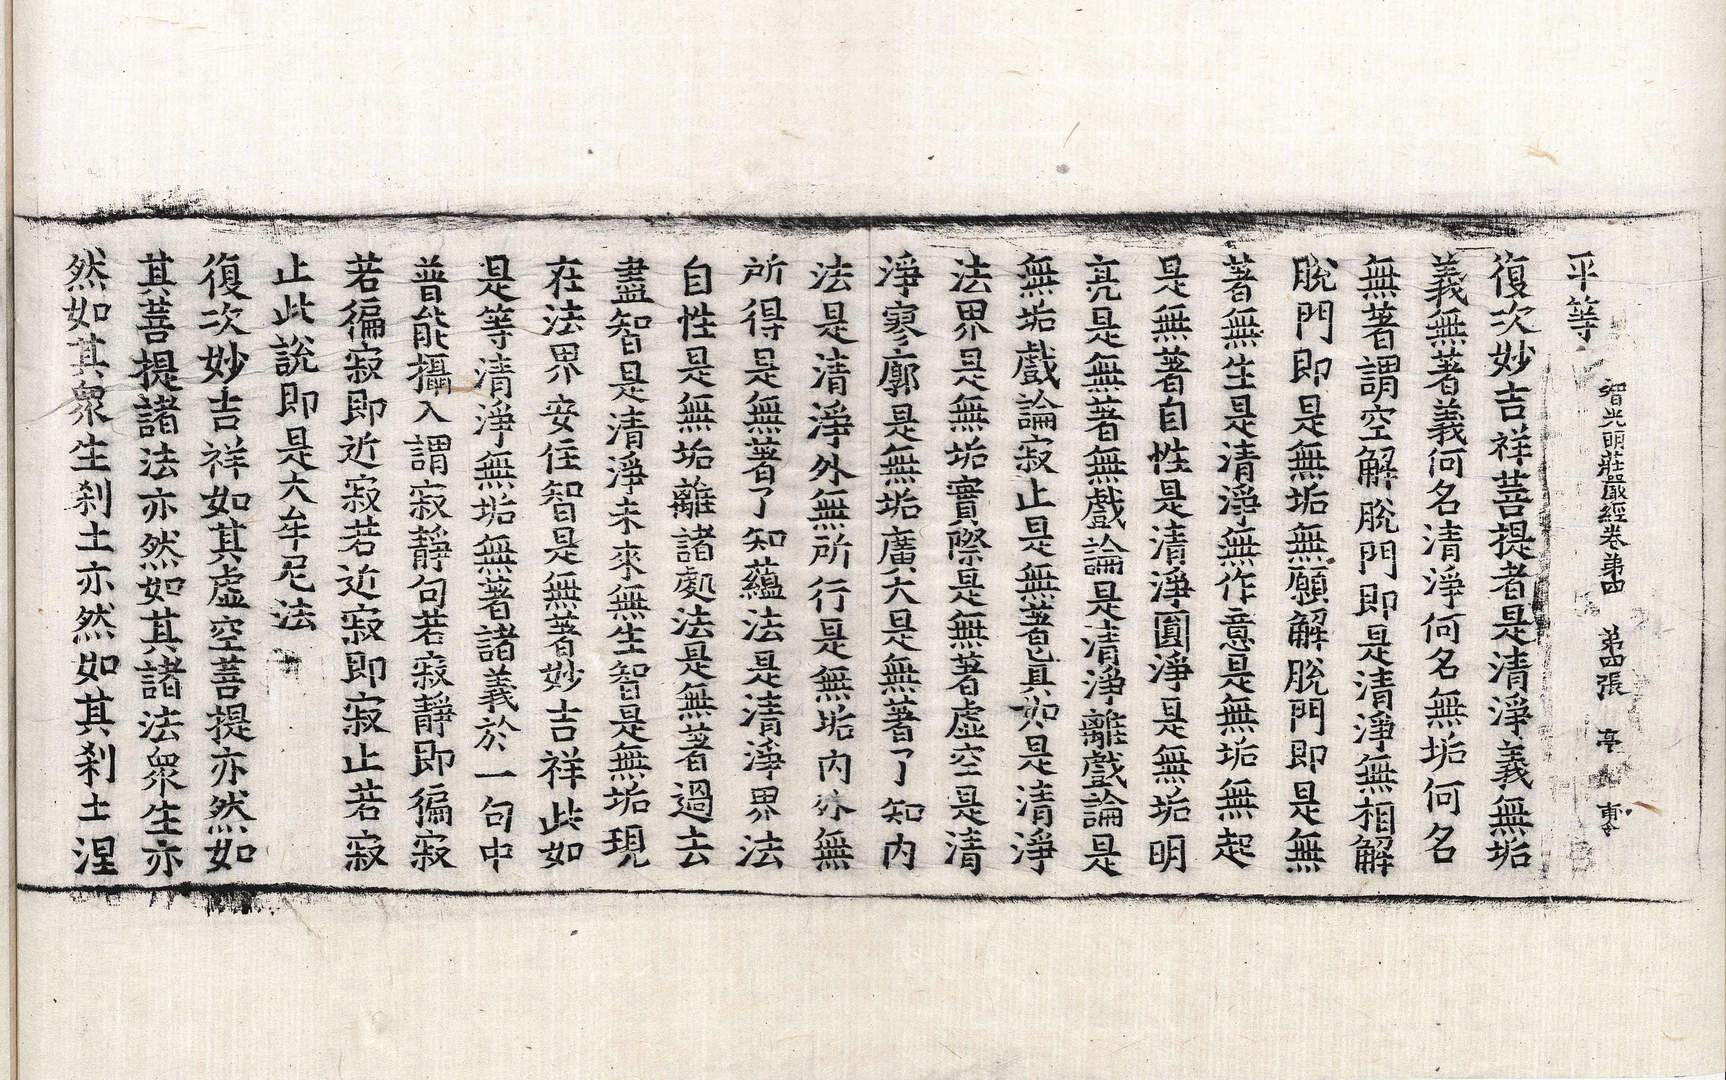 智光明莊嚴經卷第四　第四張　亭
平等
復次妙吉祥菩提者是清淨義無垢
義無著義何名清淨何名無垢何名
無著謂空解脫門即是清淨無相解
脫門即是無垢無願解脫門即是無
著無生是清淨無作意是無垢無起
是無著自性是清淨圓淨是無垢明
亮是無著無戲論是清淨離戲論是
無垢戲論寂止是無著眞如是清淨
法界是無垢實際是無著虛空是清
淨寥廓是無垢廣大是無著了知內
法是清淨外無所行是無垢內外無
所得是無著了知蘊法是清淨界法
自性是無垢離諸處法是無著過去
盡智是清淨未來無生智是無垢現
在法界安住智是無著妙吉祥此如
是等清淨無垢無著諸義於一句中
普能攝入謂寂靜句若寂靜即徧寂
若徧寂即近寂若近寂即寂止若寂
止此說即是大牟尼法
復次妙吉祥如其虛空菩提亦然如
其菩提諸法亦然如其諸法衆生亦
然如其衆生刹土亦然如其刹土涅